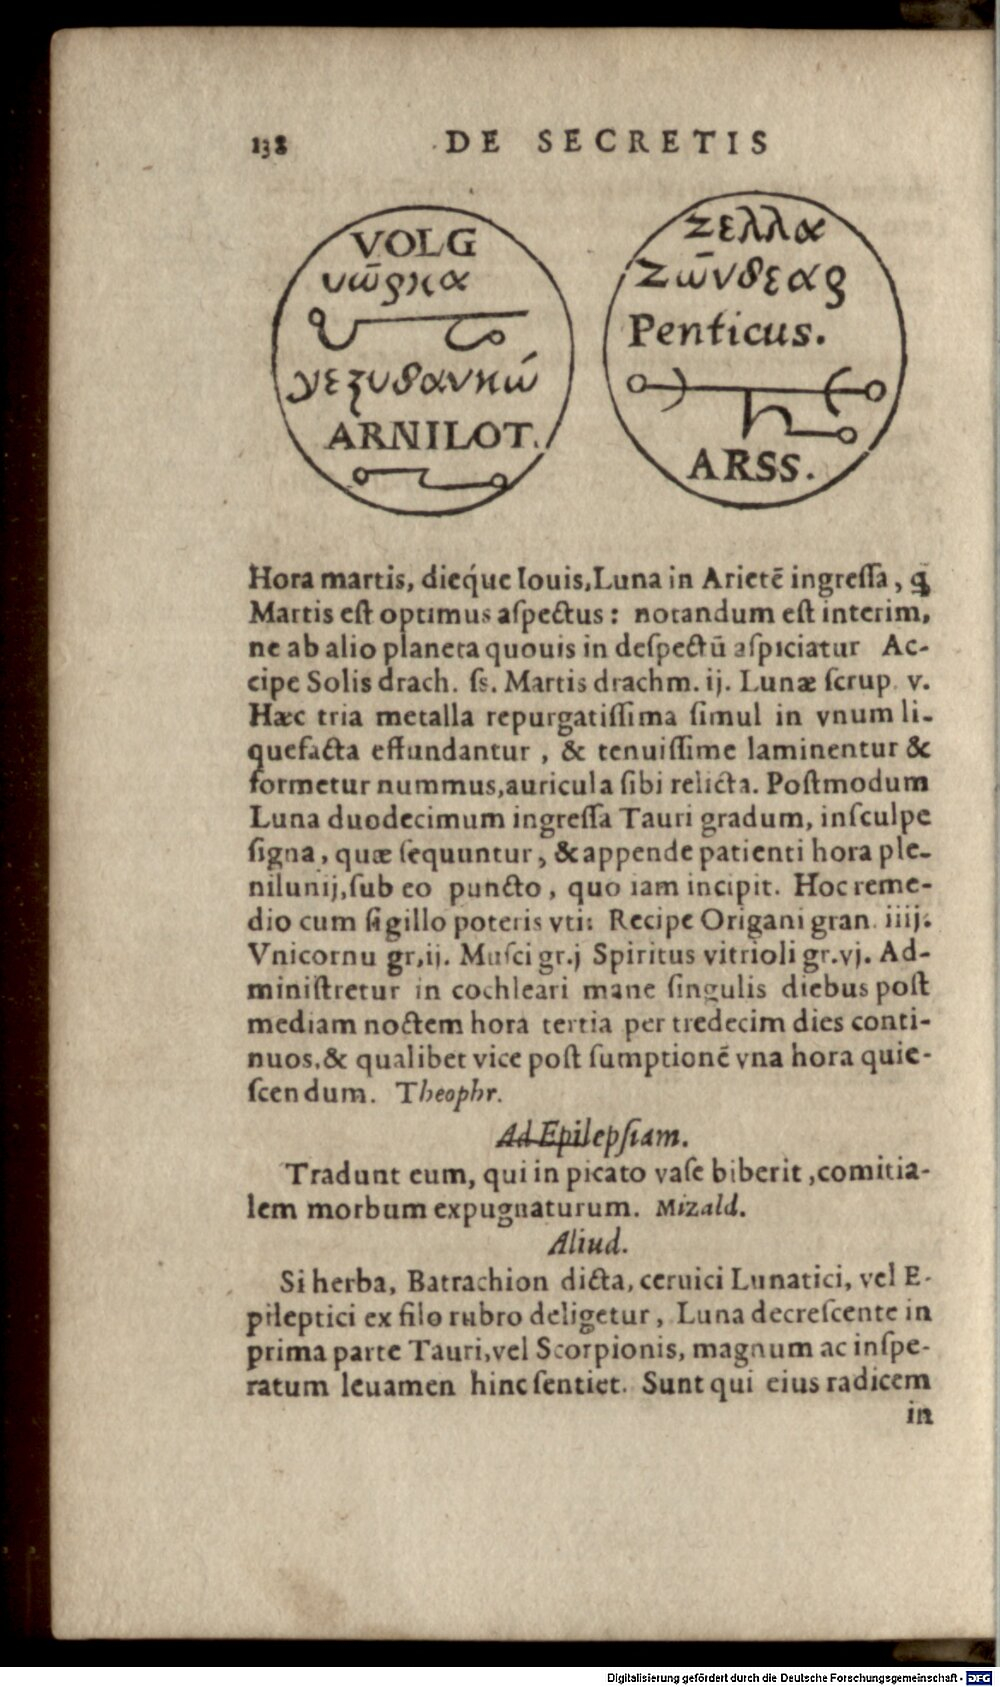 138 DE SECRETIS
VOLG
υω̄ρκα
γεξυθανκώ
ARNILOT.
Ζελλα
Ζω̄νδεας
Penticus.
ARSS.
Hora martis, dieq́ue Iouis, Luna in Arietē ingreſſa, q̃
Martis eſt optimus aſpectus: notandum eſt interim,
ne ab alio planeta quouis in deſpectū aſpiciatur Ac-
cipe Solis drach. ſs. Martis drachm. ij. Lunæ ſcrup. v.
Hæc tria metalla repurgatiſſima ſimul in vnum li-
quefacta effundantur, & tenuiſſime laminentur &
formetur nummus, auricula ſibi relicta. Poſtmodum
Luna duodecimum ingreſſa Tauri gradum, inſculpe
ſigna, quæ ſequuntur, & appende patienti hora ple-
nilunij, ſub eo puncto, quo iam incipit. Hoc reme-
dio cum ſigillo poteris vti: Recipe Origani gran. iiij.
Vnicornu gr. ij. Muſci gr. j Spiritus vitrioli gr. vj. Ad-
miniſtretur in cochleari mane ſingulis diebus poſt
mediam noctem hora tertia per tredecim dies conti-
nuos, & qualibet vice poſt ſumptionē vna hora quie-
ſcendum. Theophr.
Ad Epilepſiam.
Tradunt eum, qui in picato vaſe biberit, comitia-
lem morbum expugnaturum. Mizald.
Aliud.
Si herba, Batrachion dicta, ceruici Lunatici, vel E-
pileptici ex filo rubro deligetur, Luna decreſcente in
prima parte Tauri, vel Scorpionis, magnum ac inſpe-
ratum leuamen hinc ſentiet. Sunt qui eius radicem
in
Digitalisierung gefördert durch die Deutsche Forschungsgemeinschaft - DFG